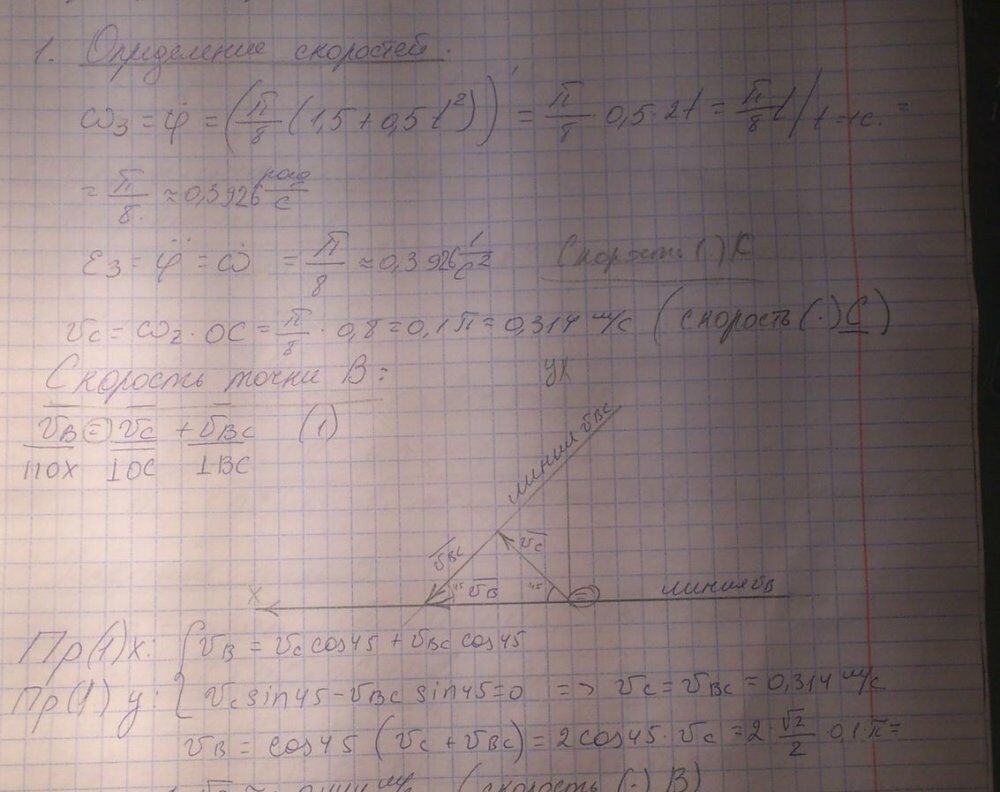 1. Определение скоростей.
ω₃ = φ̇ = (π/8 (1,5 + 0,5t²))' = π/8 · 0,5 · 2t = π/8 t | t=1c. =
= π/8. ≈ 0,3926 рад/с
ε₃ = φ̈ = ω̇ = π/8 ≈ 0,3926 1/с² Скорость (·) К
υc = ω₂ · OC = π/8 · 0,8 = 0,1π = 0,314 м/с (скорость (·) C)
Скорость точки B:
υ̅B = υ̅c + υ̅BC (1)
||OX ⊥OC ⊥BC
y
линия υBC
υ̅c
υ̅BC
x 45 υ̅B 45 линия υB
Пр(1)x: { υB = υc cos45 + υBC cos45
Пр(1)y: { υc sin45 - υBC sin45 = 0 => υc = υBC = 0,314 м/с
υB = cos45 (υc + υBC) = 2cos45 · υc = 2 · √2/2 · 0,1 · π =
(скорость (·) B)